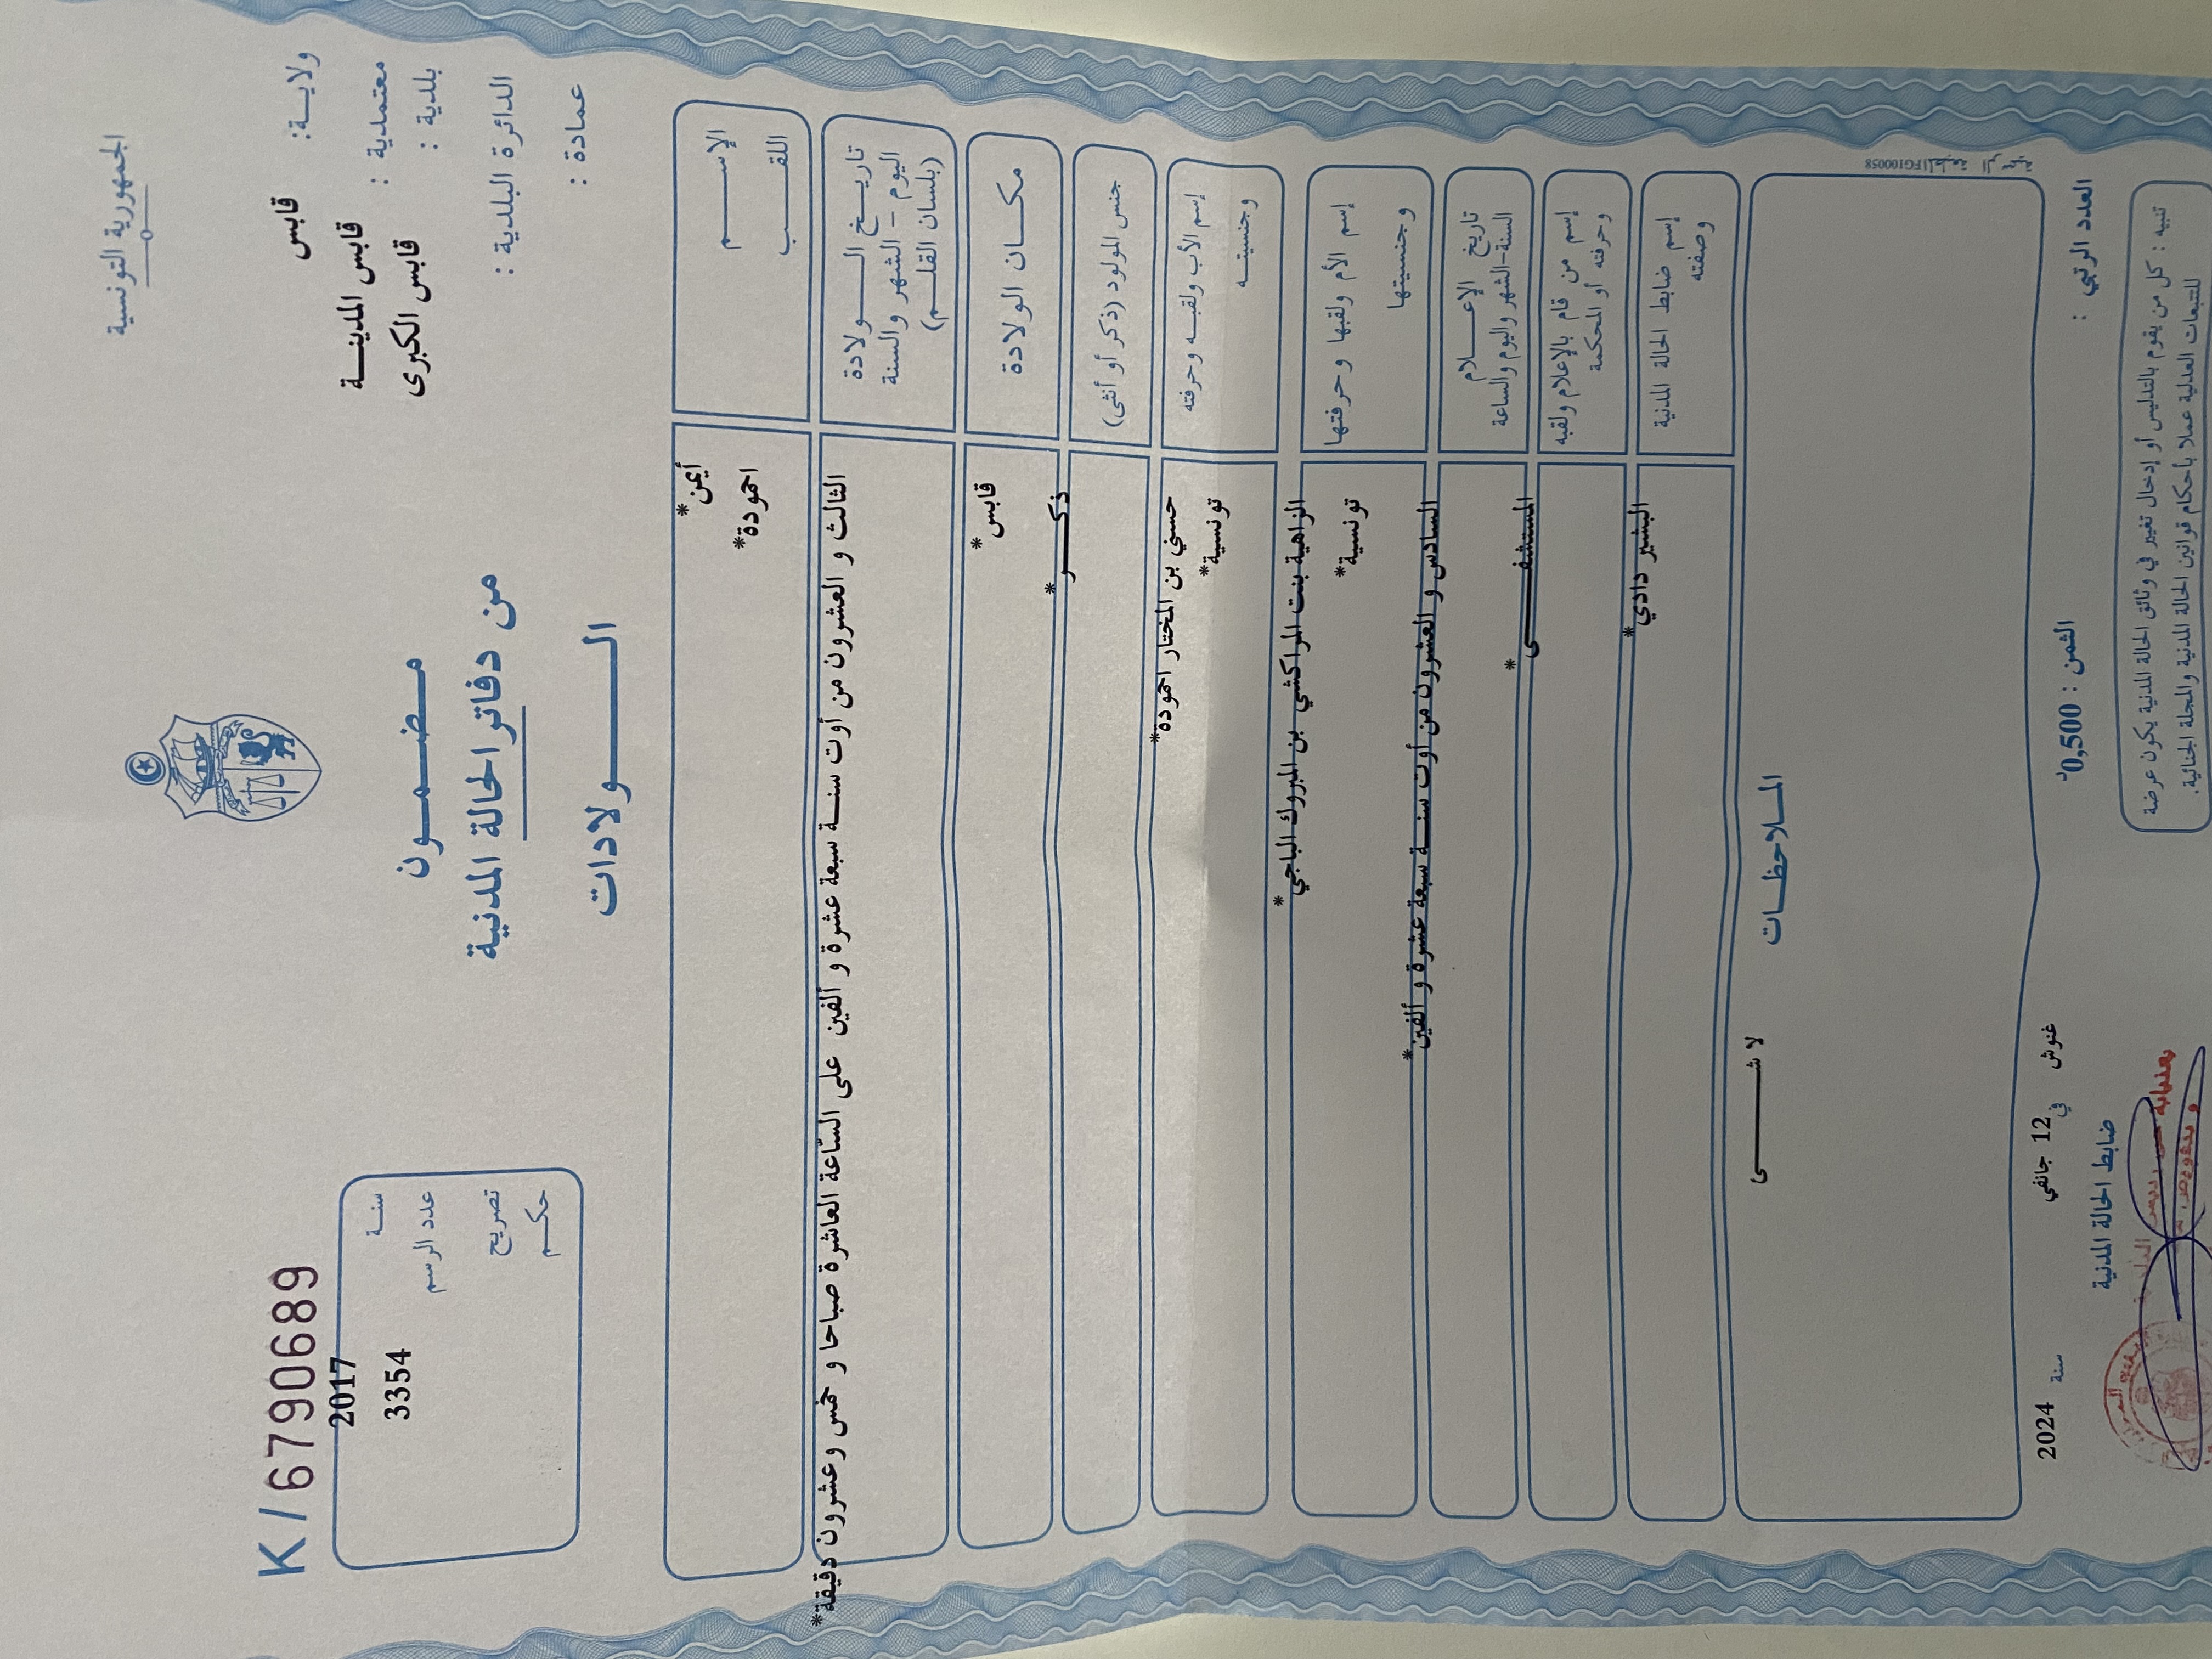 الجمهورية التونسية
ولاية: قابس
معتمدية : قابس المدينة
بلدية : قابس الكبرى
الدائرة البلدية :
عمادة :
مضمون
من دفاتر الحالة المدنية
الولادات
K/6790689
سنة 2017
عدد الرسم 3354
تصريح
حكم
الإسم أيمن*
اللقب احمودة*
تاريخ الولادة
اليوم - الشهر والسنة
(بلسان القلم)
الثالث و العشرون من أوت سنة سبعة عشرة و ألفين على السّاعة العاشرة صباحا و خمس وعشرون دقيقة*
مكان الولادة قابس*
جنس المولود (ذكر أو أنثى) ذكر*
إسم الأب ولقبه وحرفته حسني بن المختار احمودة*
وجنسيته تونسية*
إسم الأم ولقبها وحرفتها الزاهية بنت المراكشي بن المبروك الباجي*
وجنسيتها تونسية*
تاريخ الإعلام
السنة-الشهر واليوم والساعة
السادس و العشرون من أوت سنة سبعة عشرة و ألفين*
إسم من قام بالإعلام ولقبه
وحرفته أو المحكمة
المستشفى*
إسم ضابط الحالة المدنية
وصفته
البشير دادي*
الملاحظات
لا شى
العدد الرتبي :
الثمن : 0,500د
غنوش في 12 جانفي سنة 2024
ضابط الحالة المدنية
تنبيه : كل من يقوم بالتدليس أو إدخال تغيير في وثائق الحالة المدنية يكون عرضة
للتتبعات العدلية عملا بأحكام قوانين الحالة المدنية والمجلة الجنائية.